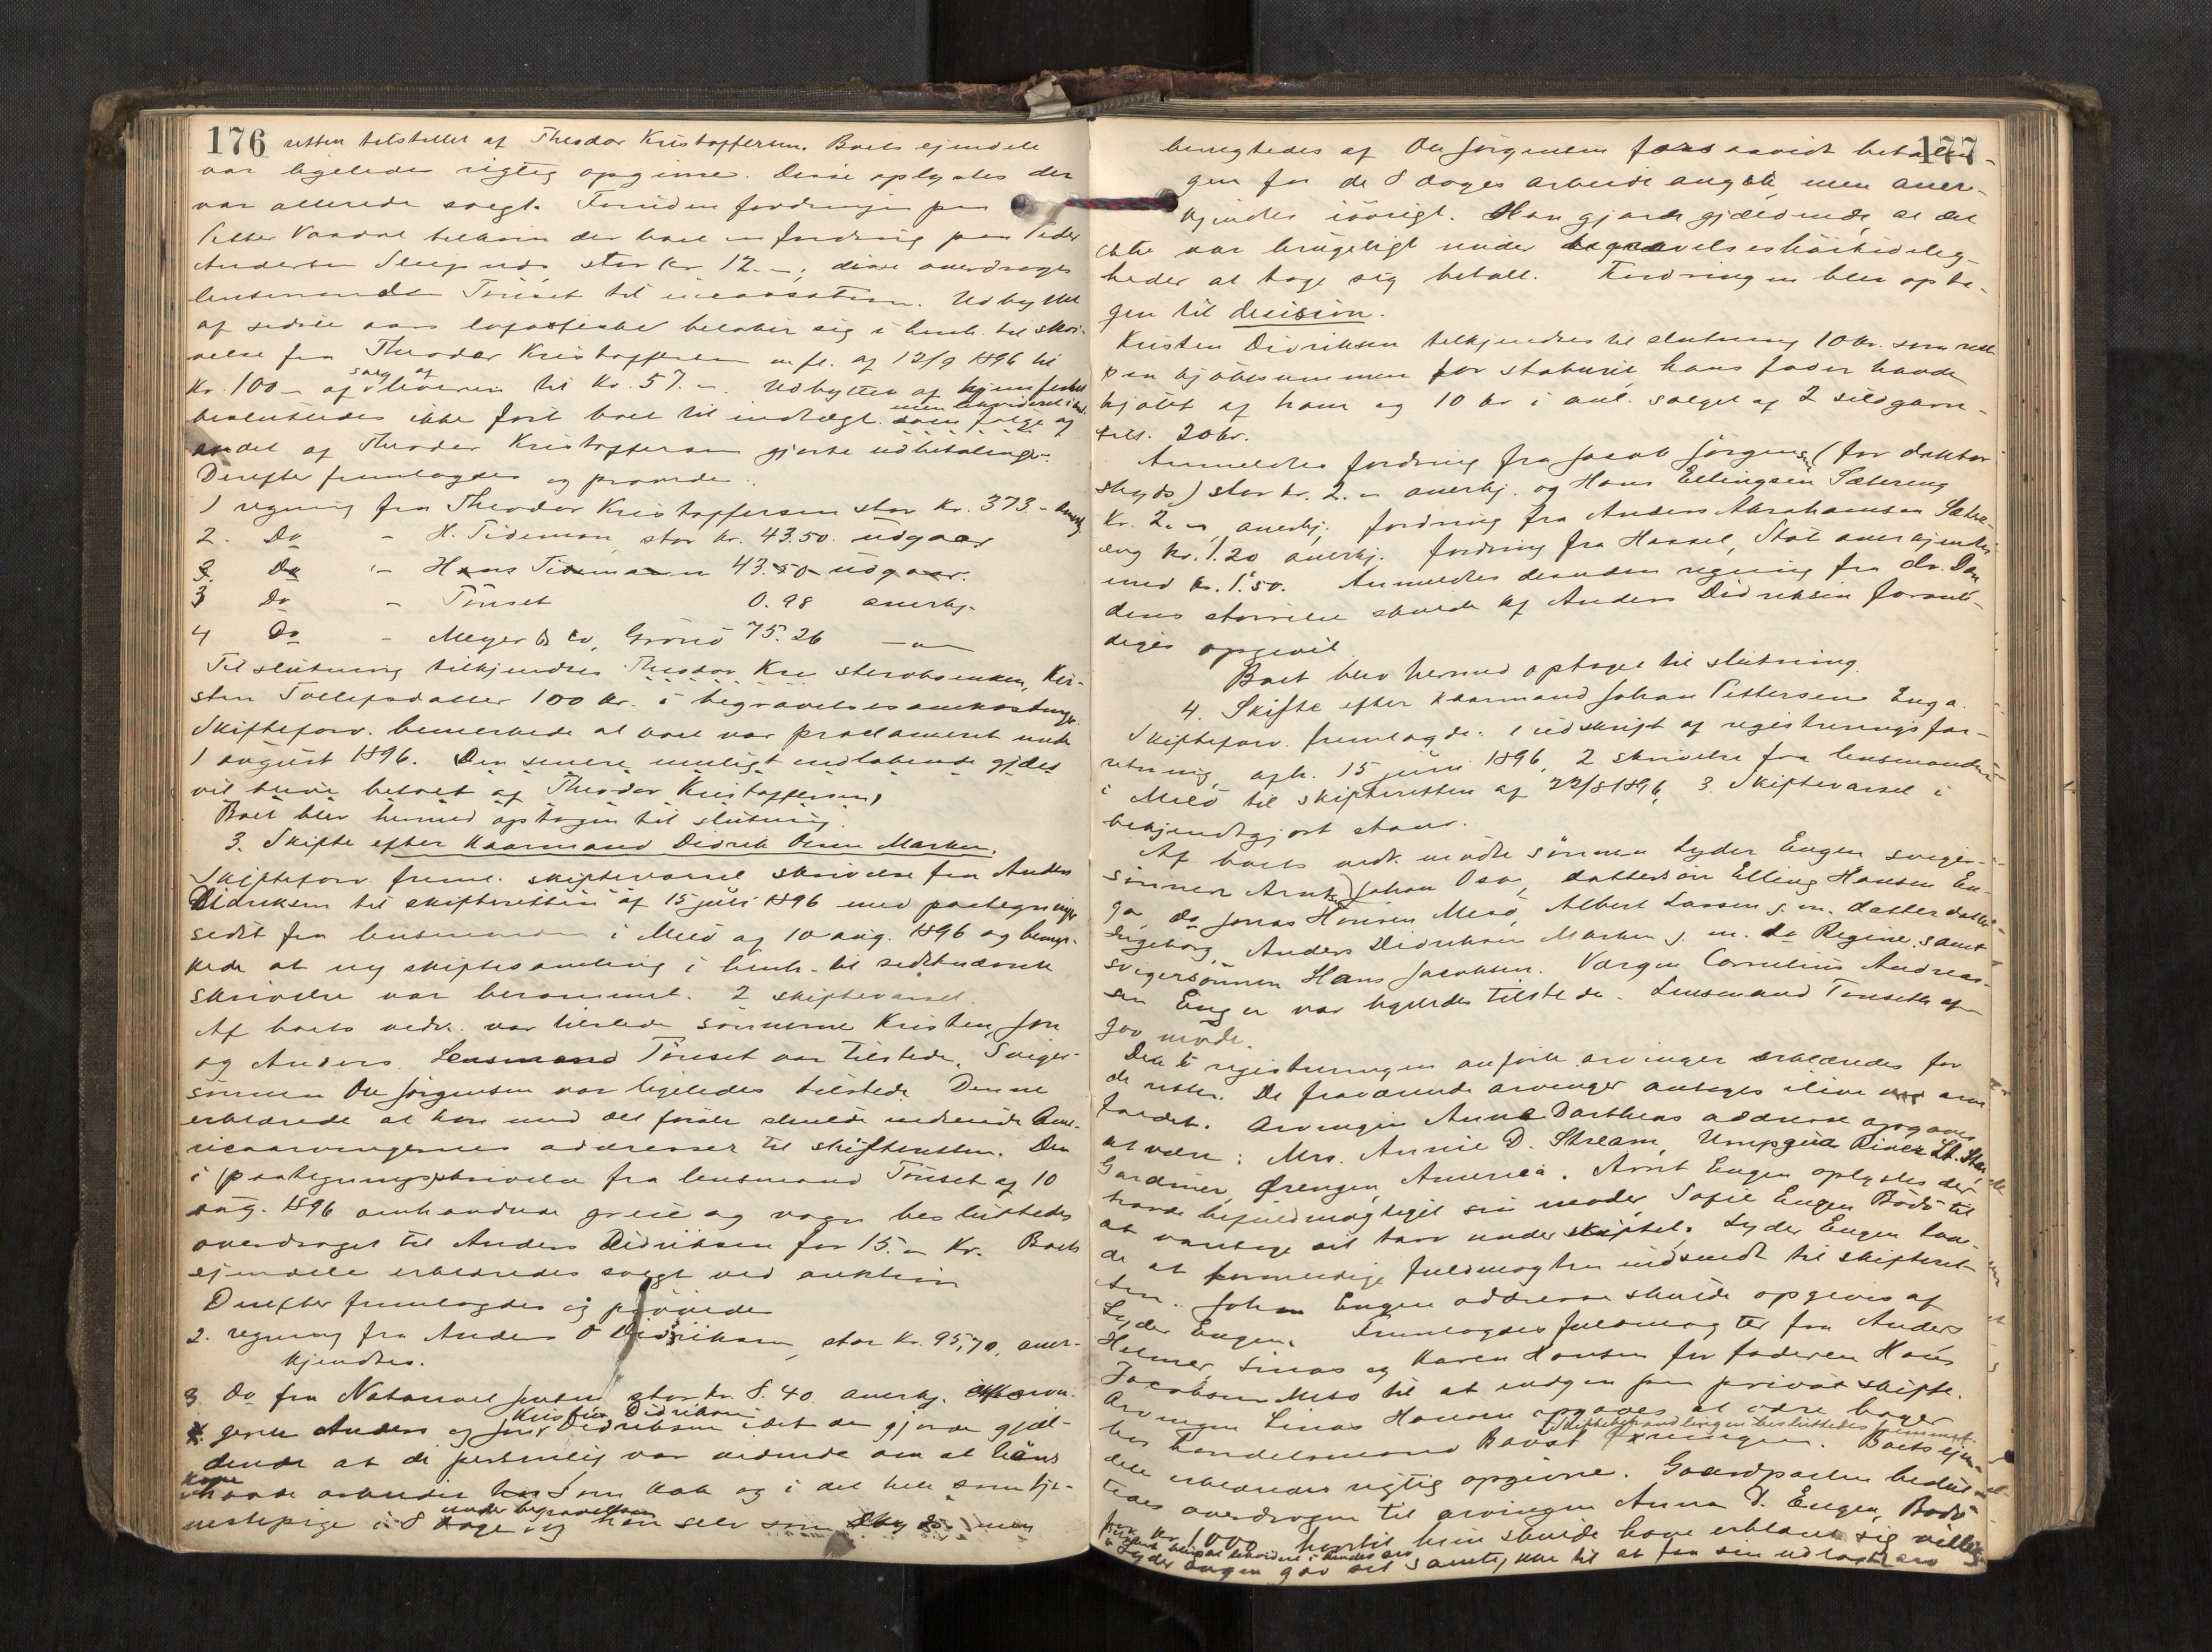 176
retten tilstillet af Theodor Kristoffersen. Boets ejendele
var ligeledes rigtig opgivne. Disse oplystes der
var allerede solgt. Foruden fordringen paa
Petter Vaadal tilkom der boet en fordring paa Peder
Andersen Sleipnæs stor kr 12.–; disse overdroges
lensmanden Tönset til incassation. Udbyttet
af sidste aars lofotfiske belöber sig i henh. til skri-
velse fra Theodor Kristoffersen m. fl. af 12/9 1896 til
Kr. 100 – af salg af leveren til Kr. 57.– Udbyttet af hjemfisket
besluttedes ikke fört boet til indtægt som fölge af
andel af Theodor Kristoffersen gjorte udbetalinger.
Derefter fremlagdes og prövedes:
1 regning fra Theodor Kristoffersen stor Kr. 373.– anerkj.
2. Do – H. Tideman, stor kr. 43.50. udgaar
3. Do – Hans Tidemann 43.50 udgaar.
3 Do – Tönset 0.98 anerkj.
4 Do – Meyer & Co, Grönö 75.26 –"–
Til slutning tilkjendtes Theodor Kri stervboenken, Kir-
sten Tollefsdatter 100 kr. i begravelsesomkostninger.
Skifteforv. bemerkede at boet var proclameret under
1 august 1896. Den senere muligt indlöbende gjæld
vil blive betalt af Theodor Kristoffersen,
Boet blev hermed optagen til slutning.
3. Skifte efter Kaarmand Didrik Olsen Marken.
Skifteforv. freml. skiftevarsel skrivelse fra Anders
Didriksen til skifteretten af 15 juli 1896 med paategnings
sedst fra lensmanden i Melö af 10 aug. 1896 og bemær-
kede at ny skiftesamling i henh. til sidstnævnte
skrivelse var berammet. 2 skiftevarsel.
Af boets vedk. var tilstede sönnerne Kristen, Jon
og Anders. Lensmand Tönset var tilstede. Sviger-
sönnen Ole Jörgensen var ligeledes tilstede. Denne
erklærede at han med det förste skulde indsende Ame-
ricaarvingernes adresser til skifteretten. Den
i (paategnings)skrivelse fra lensmand Tönset af 10
aug. 1896 omhandlede greie og vogn besluttedes
overdraget til Anders Didriksen for 15.– Kr. Boets
ejendele erklæredes solgt ved auktion
Derefter fremlagdes og prövedes
2. regning fra Anders O Didriksen, stor kr. 95,70, aner-
kjendtes.
3 Do fra Natanael Jensen stor kr. 8.40. anerkj.
gerne Anders og Jon Kristen Didriksen Didriksen idet de gjorde gjæl-
dende at de personlig var vidende om at hans
kone havde arbeidet som kok og i det hele som tje-
nestepige i 8 dage under begravelsen og han selv som skyds, men
177
benegtedes af Ole Jörgensen forsaavidt betalin-
gen for de 8 dages arbeide angik, men aner-
kjendtes iövrigt. Han gjorde gjældende, at det
ikke var brugeligt under begravelseshöitidelig-
heder at tage sig betalt. Fordringen blev opta-
gen til decision.
Kristen Didriksen tilkjendtes til slutning 10 kr. som rest
paa kjöbesummen for staburet hans fader havde
kjöbt af ham og 10 kr i anl. salget af 2 sildgarn-
tils. 20 kr.
Anmeldtes fordring fra Jacob Jörgensen (for doktor
skyds) stor kr. 2.– anerkj. og Hans Ellingsen Sætereng
Kr. 2.–, anerkj; fordring fra Anders Abrahamsen Sætre-
eng kr. 1.20 anerkj. fordring fra Hassel, Stöt anerkjendtes
med kr. 1.50. Anmeldtes desuden regning fra dr.
dens störrelse skulde af Anders Didriksen forand-
diges opgivet
Boet blev hermed optaget til slutning.
4. Skifte efter kaarmand Johan Pettersen Enga.
Skifteforv. fremlagde: 1 udskrift af registreringsfor-
retning, afh. 15 juni 1896, 2 skrivelse fra lensmanden
i Melö til skifteretten af 22/8 1896, 3. Skiftevarsel i
bekjendtgjort stand.
Af boets vedk. mödte sönnen Lyder Engen sviger-
sönnen Johan Osa, dattersön Elling Hansen En-
ga, do Jonas Hansen Mesö, Albert Larsen g. m. datterdatter
Ingeborg, Anders Didriksen Marken g. m. do Regine, samt
svigersönnen Hans Jacobsen. Værgen Cornelius Andreas-
sen Engen var ligeledes tilstede. Lensmand Tönseth af-
gav möde.
De i registreringen anförte arvinger erklæredes for
de rette. De fraværende arvinger antages ilive ved arve
faldet. Arvingen Anna Dortheas addresse opgaves
at være: Mrs. Annie D. Stream, Umpqua River Lt. Sta,
Gardiner, Orengen, America. Arnt Engen oplystes der
havde befuldmægtiget sin moder, Sofie Engen Bodö til
at varetage sit tarv under skiftet. Lyder Engen lov-
de at formentlige fuldmagten indsendt til skifteret-
ten. Johan Engen addresse skulde opgives af
Lyder Engen. Fremlagdes fuldmagter fra Anders,
Helmer, Linas og Karen Hansen for faderen Hans
Jacobsen Mesö til at indgaa paa privat skifte.
Arvingen Linas Hansen opgaves at være bager
hos handelsmand Skiftebehandlingen besluttedes fremmet Boets ejen-
dele erklæredes rigtig opgivne. Gaardparten beslut-
tedes overdragen til arvingen Anna D. Engen, Bodö
for Kr. 1000 hvortil hun skulde have erklært sig villig
Lyder Engen gav sit samtykke til at faa sin udlagte arv